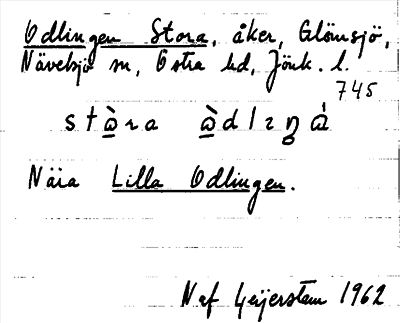 Odlingen Stora, åker, Glömsjö,
Nävelsjö sn, Östra hd, Jönk. l.
745
stɷ̀ra ɷ̀dlıŋa
Nära Lilla Odlingen.
N af Geijerstam 1962